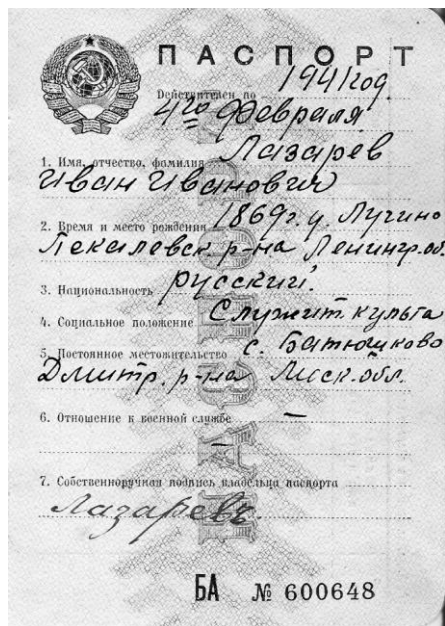 ПАСПОРТ
Действителен по 1941 год
4го Февраля
1. Имя, отчество, фамилия Лазарев
Иван Иванович
2. Время и место рождения 1869 г. Лучино
р-на Ленингр. об.
3. Национальность русский.
4. Социальное положение Служит. культа
5. Постоянное местожительство с. Батюшково
Дмитр. р-на Моск. обл.
6. Отношение к военной службе —
—
7. Собственноручная подпись владельца паспорта
Лазаревъ.
БА № 600648